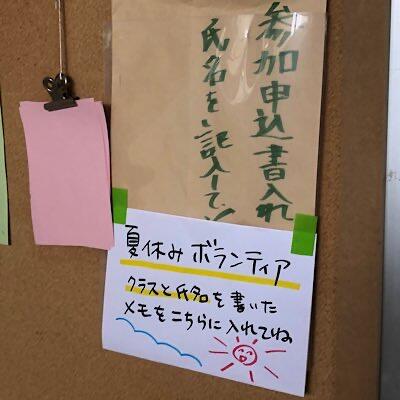 参加申込書入れ
氏名を記入して
夏休みボランティア
クラスと氏名を書いた
メモをこちらに入れてね